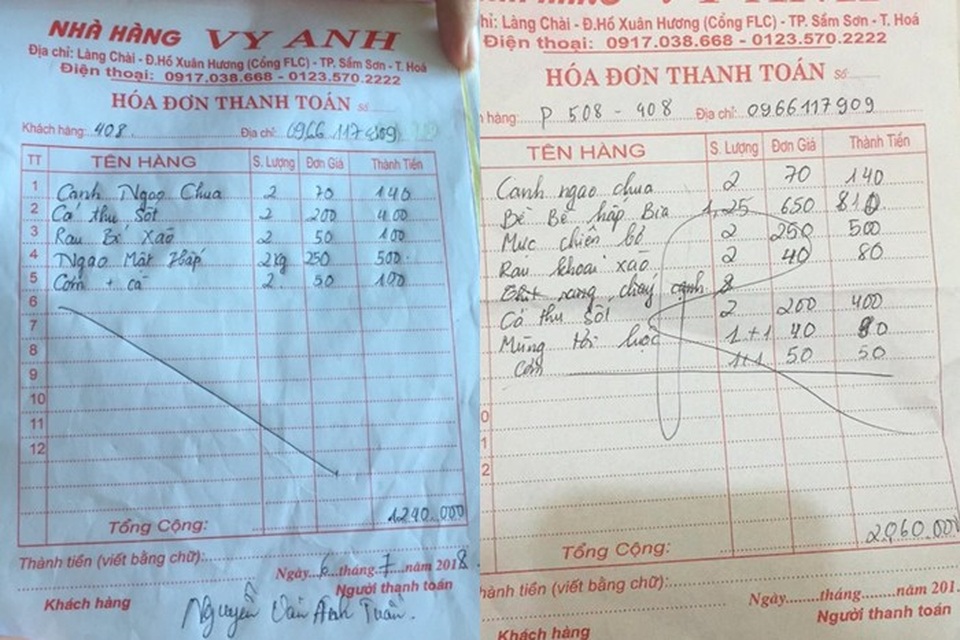 NHÀ HÀNG VY ANH
Địa chỉ: Làng Chài - Đ.Hồ Xuân Hương (Cổng FLC) - TP. Sầm Sơn - T. Hoá
Điện thoại: 0917.038.668 - 0123.570.2222
HÓA ĐƠN THANH TOÁN Số
Khách hàng: 408. Địa chỉ: 0966 117 909
TT TÊN HÀNG S. Lượng Đơn Giá Thành Tiền
1 Canh Ngao Chua 2 70 140
2 Cá thu Sốt 2 200 400
3 Rau Bí Xào 2 50 100
4 Ngao Mật Hấp 2kg 250 500
5 Cơm + cà 2 50 100
6
7
8
9
10
11
12
Tổng Cộng: 1240.000
Thành tiền (viết bằng chữ):
Ngày 6 tháng 7 năm 2018
Khách hàng Người thanh toán
Nguyễn Văn Anh Tuấn
HÀNG VY ANH
chỉ: Làng Chài - Đ.Hồ Xuân Hương (Cổng FLC) - TP. Sầm Sơn - T. Hoá
Điện thoại: 0917.038.668 - 0123.570.2222
HÓA ĐƠN THANH TOÁN Số
hàng: P 508 - 408 Địa chỉ: 0966117909
TÊN HÀNG S. Lượng Đơn Giá Thành Tiền
Canh ngao chua 2 70 140
Bề Bề hấp Bia 1,25 650 810
Mực chiên bơ 2 250 500
Rau khoai xào 2 40 80
rang cháy cạnh
Cá thu sốt 2 200 400
Mùng tơi luộc 1+1 40 80
Cơm 1+1 50 50
0
1
2
Tổng Cộng: 2060.000
hành tiền (viết bằng chữ):
Ngày tháng năm 201
Khách hàng Người thanh toán